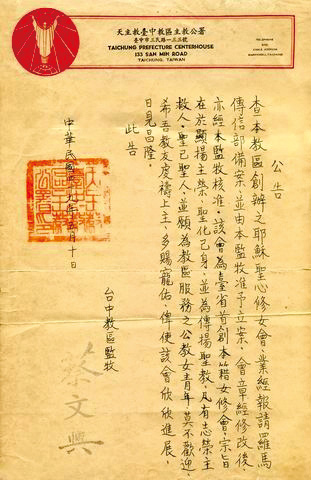 天主教臺中教區主教公署
臺中市三民路一三三號
TAICHUNG PREFECTURE CENTERHOUSE
133 SAN MIN ROAD
TAICHUNG, TAIWAN
公告
查本教區創辦之耶穌聖心修女會,業經報請羅馬
傳信部備案,並由本監牧准予立案,會章經修改後,
亦經本監牧核准。該會為臺省首創本籍女修會,宗旨
在於顯揚主榮,聖化己身,並為傳揚聖教,凡有志榮主
救人,聖己聖人,並願為教區服務之公教女青年,莫不歡迎,
希吾教友虔禱上主,多賜寵佑,俾使該會欣欣進展,
日見昌隆。
此告
台中教區監牧
蔡文興
中華民國年五月十日